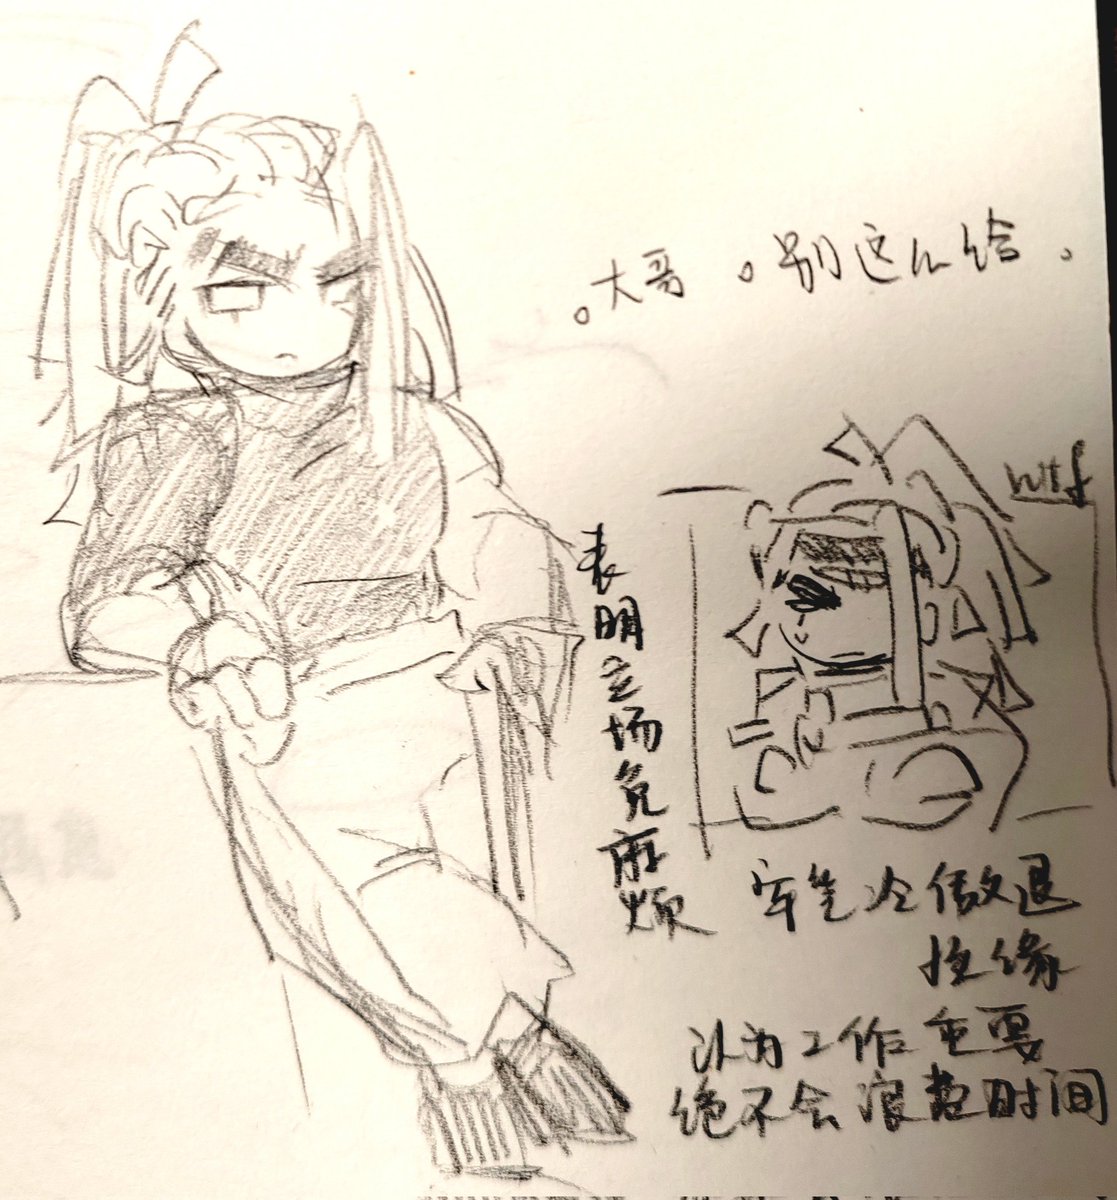 。大哥 。别这么给 。
wtf
表明立场免麻烦
冷傲退
缘
认为工作重要
绝不会浪费时间